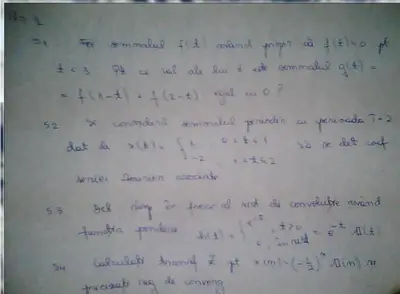 S1 Fie semnalul f(t) având propr. că f(t)=0 pt
t < 3. Pt ce val ale lui t este semnalul g(t) =
= f(1-t) + f(2-t) egal cu 0?
S2 Se consideră semnalul periodic cu perioada T=2
dat de x(t) = { 1, 0 < t < 1 să se det coef
-2, 1 < t < 2
seriei Fourier asociate
S3 în frecv al sist de convoluție având
funcția pondere h(t) = { e^{-t}, t>0 = e^{-t} 𝟙(t)
0, în rest
S4 Calculați transf z pt x(n) = (-1/2)^n 𝟙(n) și
precizați reg de converg